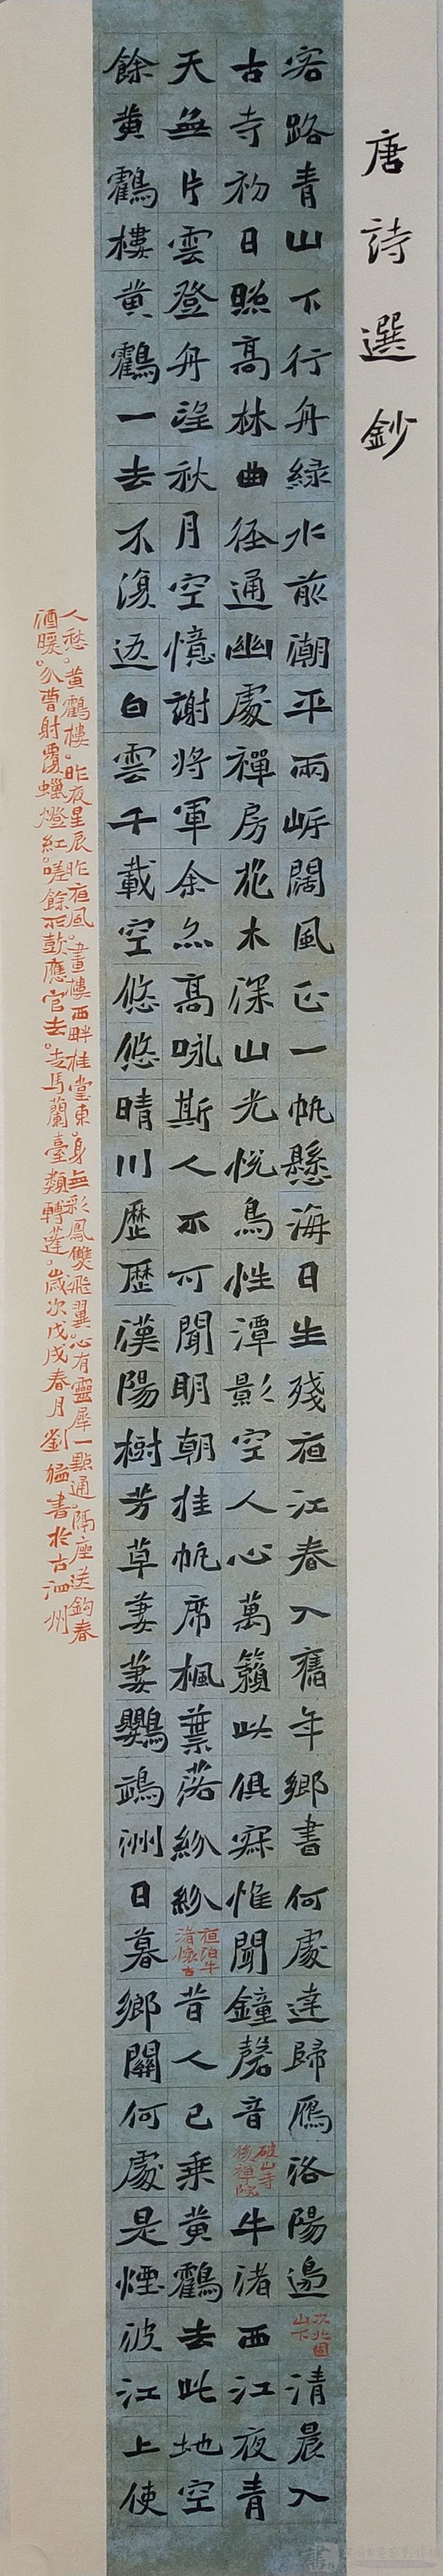 唐詩選鈔
客路青山下行舟綠水前潮平兩岸闊風正一帆懸海日生殘夜江春入舊年鄉書何處達歸鴈洛陽邊次北固山下清晨入
古寺初日照高林曲徑通幽處禪房花木深山光悅鳥性潭影空人心萬籟此俱寂惟聞鐘磬音破山寺後禪院牛渚西江夜青
天無片雲登舟望秋月空憶謝將軍余亦高詠斯人不可聞明朝挂帆席楓葉落紛紛夜泊牛渚懷古昔人已乘黃鶴去此地空
餘黃鶴樓黃鶴一去不復返白雲千載空悠悠晴川歷歷漢陽樹芳草萋萋鸚鵡洲日暮鄉關何處是煙波江上使
人愁。黃鶴樓。昨夜星辰昨夜風。畫樓西畔桂堂東。身無彩鳳雙飛翼。心有靈犀一點通。隔座送鈎春
酒暖。分曹射覆蠟燈紅。嗟餘聽鼓應官去。走馬蘭臺類轉蓬。歲次戊戌春月劉猛書於古泗州